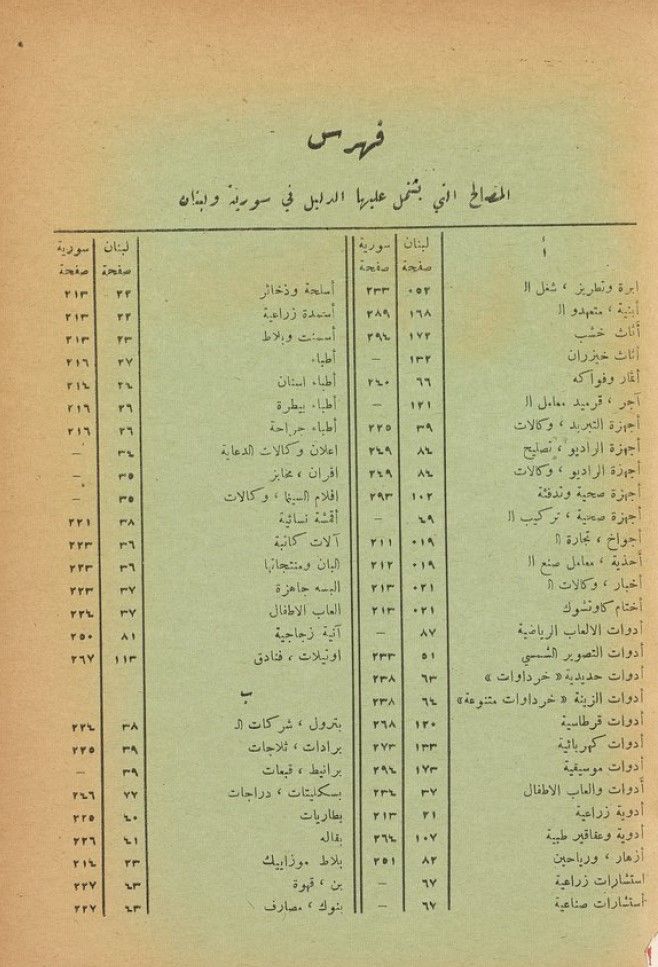 فهرس
المصالح التي يشتمل عليها الدليل في سورية ولبنان
أ لبنان سورية
صفحة صفحة
ابرة وتطريز ، شغل الـ ٠٥٢ ٢٣٣
أبنية ، متعهدو الـ ١٦٨ ٢٨٩
أثاث خشب ١٧٢ ٢٩٤
أثاث خيزران ١٣٢ –
أثمار وفواكه ٦٦ ٢٤٠
آجر ، قرميد معامل الـ ١٢١ –
أجهزة التبريد ، وكالات ٣٩ ٢٢٥
أجهزة الراديو ، تصليح ٨٤ ٢٤٩
أجهزة الراديو ، وكالات ٨٤ ٢٤٩
أجهزة صحية وتدفئة ١٠٢ ٢٩٣
أجهزة صحية ، تركيب الـ ٤٩ –
أجواخ ، تجارة الـ ٠١٩ ٢١١
أحذية ، معامل صنع الـ ٠١٩ ٢١٢
أخبار ، وكالات الـ ٠٢١ ٢١٣
أختام كاوتشوك ٠٢١ ٢١٣
أدوات الالعاب الرياضية ٨٧ –
أدوات التصوير الشمسي ٥١ ٢٣٣
أدوات حديدية « خرداوات » ٦٣ ٢٣٨
أدوات الزينة « خرداوات متنوعة» ٦٤ ٢٣٨
أدوات قرطاسية ١٢٠ ٢٦٨
أدوات كهربائية ١٣٣ ٢٧٣
أدوات موسيقية ١٧٣ ٢٩٤
أدوات والعاب الاطفال ٣٧ ٢٣٤
أدوية زراعية ٢١ ٢١٣
أدوية وعقاقير طبية ١٠٧ ٢٦٤
أزهار ، ورياحين ٨٢ ٢٥١
استشارات زراعية ٦٧ –
استشارات صناعية ٦٧ –
لبنان سورية
صفحة صفحة
أسلحة وذخائر ٢٢ ٢١٣
أسمدة زراعية ٢٢ ٢١٣
أسمنت وبلاط ٢٣ ٢١٣
أطباء ٢٧ ٢١٦
أطباء اسنان ٢٤ ٢١٤
أطباء بيطرة ٢٦ ٢١٦
أطباء جراحة ٢٦ ٢١٦
اعلان وكالات الدعاية ٣٤ –
افران ، مخابز ٣٥ –
افلام السينما ، وكالات ٣٥ –
أقمشة نسائية ٣٨ ٢٢١
آلات كاتبة ٣٦ ٢٢٣
البان ومنتجاتها ٣٦ ٢٢٣
البسه جاهزة ٣٧ ٢٢٣
العاب الاطفال ٣٧ ٢٢٤
آنية زجاجية ٨١ ٢٥٠
اوتيلات ، فنادق ١١٣ ٢٦٧
ب
بترول ، شركات الـ ٣٨ ٢٢٤
برادات ، ثلاجات ٣٩ ٢٢٥
برانيط ، قبعات ٣٩ –
بسكليتات ، دراجات ٧٧ ٢٤٦
بطاريات ٤٠ ٢٢٥
بقاله ٤١ ٢٢٦
بلاط موزاييك ٢٣ ٢١٤
بن ، قهوة ٤٣ ٢٢٧
بنوك ، مصارف ٤٣ ٢٢٧